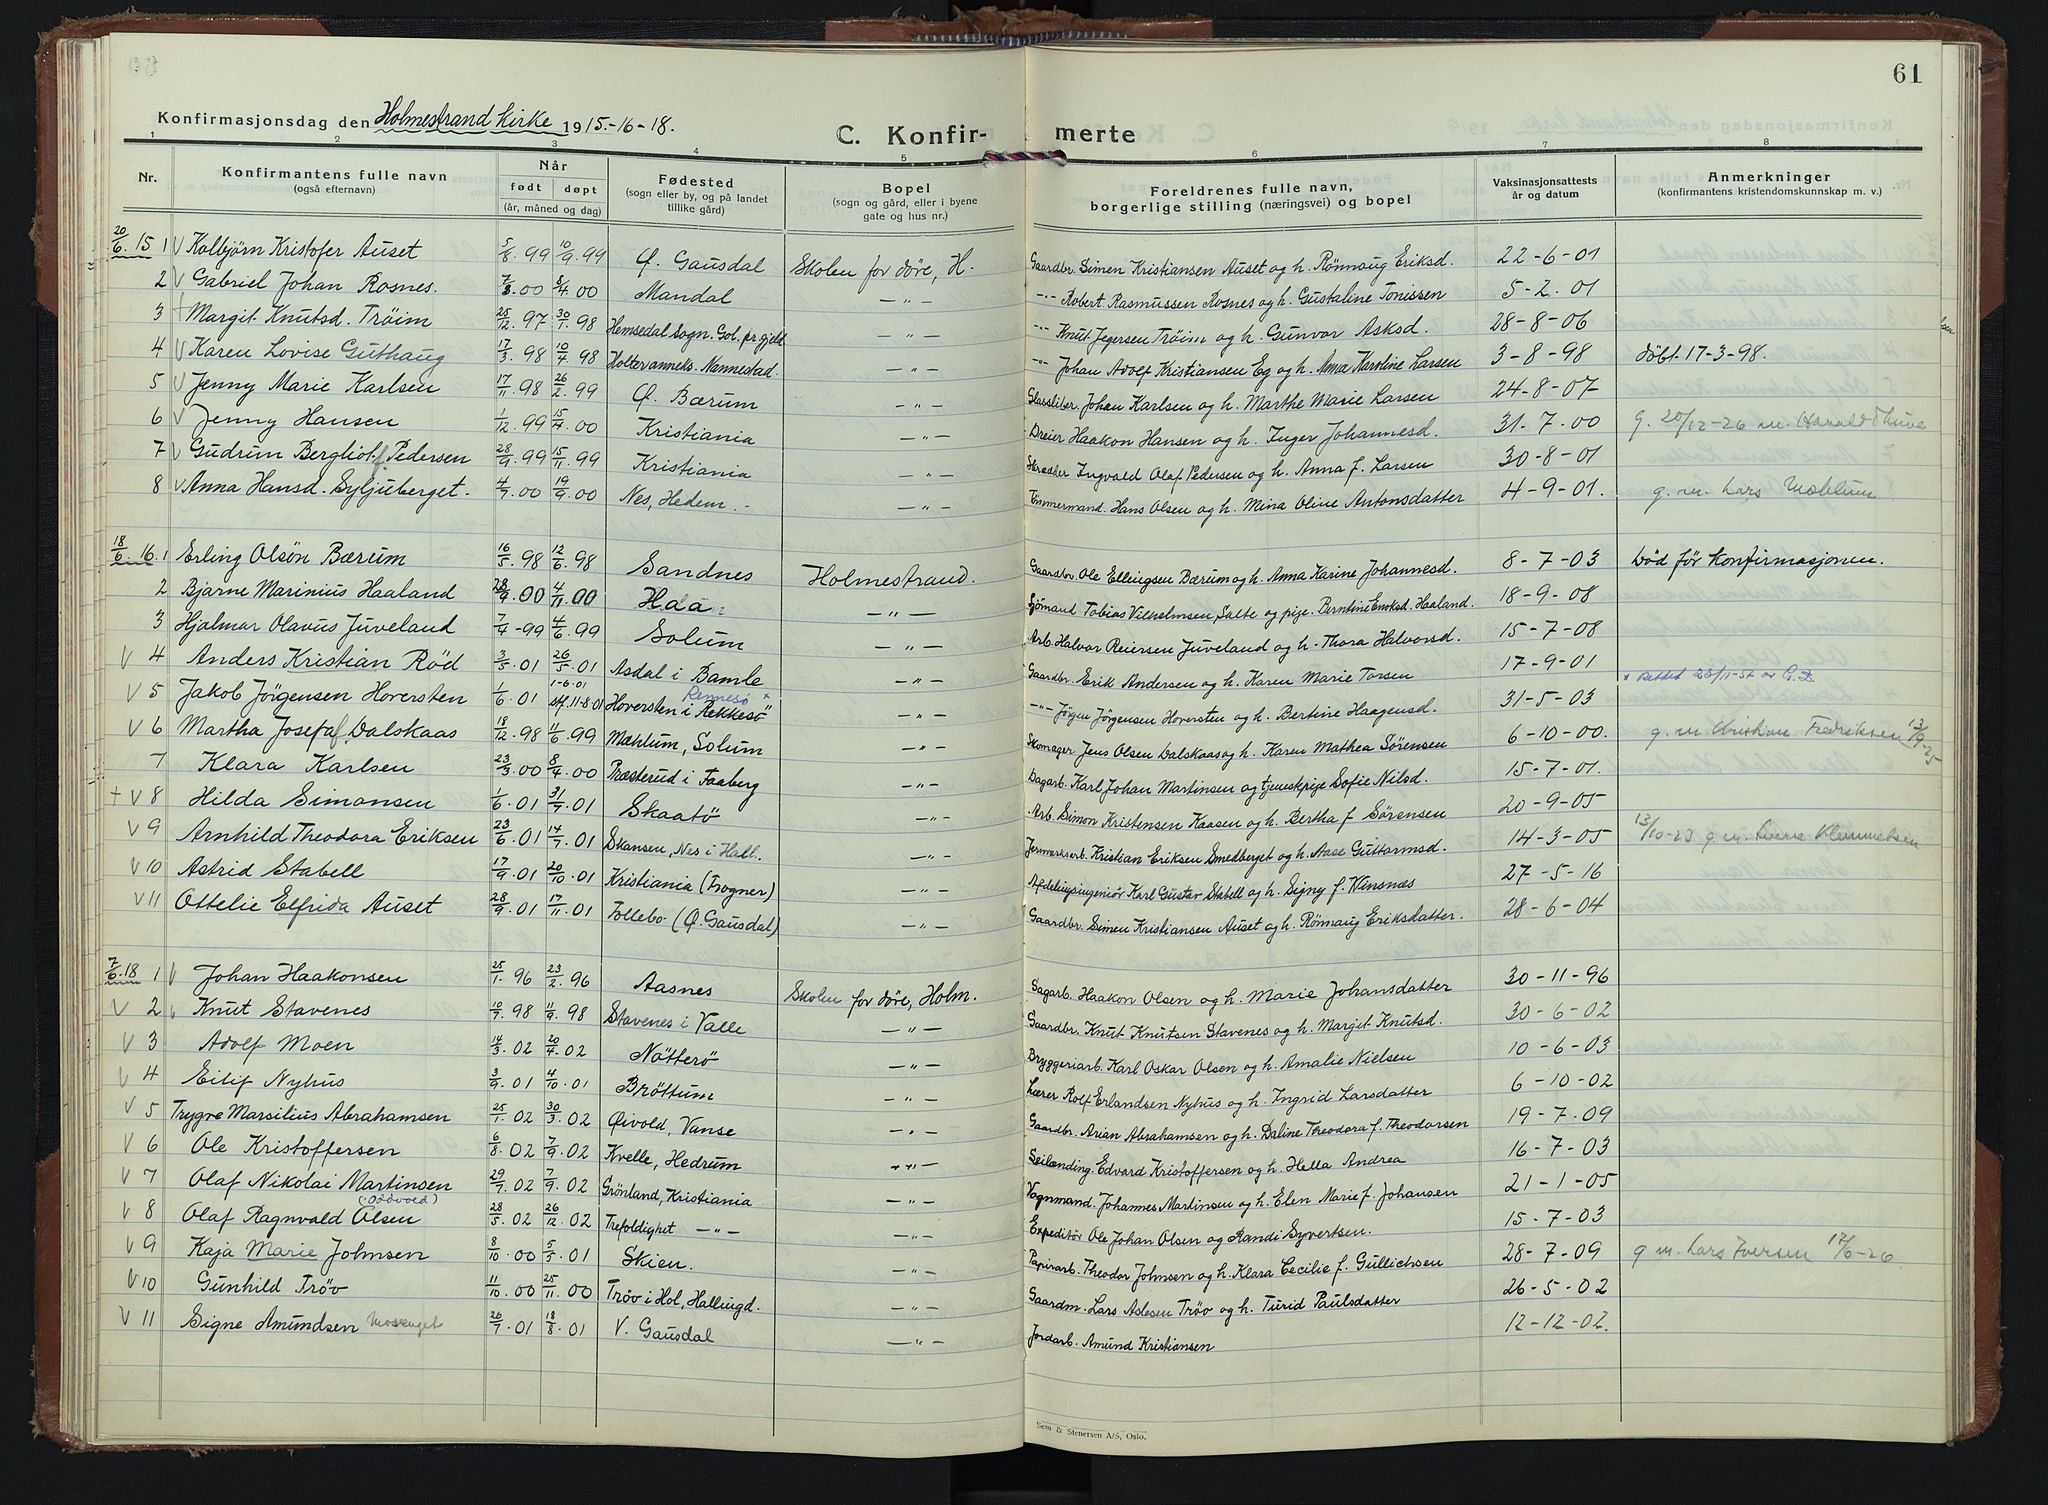 61
Konfirmasjonsdag den Holmestrand kirke 1915.-16-18.
C. Konfir- merte
1 2 3 4 5 6 7 8
Nr. Konfirmantens fulle navn (også efternavn) Når født døpt (år, måned og dag) Fødested (sogn eller by, og på landet tillike gård) Bopel (sogn og gård, eller i byene gate og hus nr.) Foreldrenes fulle navn, borgerlige stilling (næringsvei) og bopel Vaksinasjonsattests år og datum Anmerkninger (konfirmantens kristendomskunnskap m. v.)
20/6. 15 1 Kolbjørn Kristofer Auset 5/8.99 10/9.99 Ø. Gausdal Skolen for døve, H. Gaardbr. Simen Kristiansen Auset og h. Rönnaug Eriksd. 22-6-01
2 Gabriel Johan Rosnes. 7/3.00 8/4.00 Mandal —"— —"— Robert Rasmussen Rosnes og h. Gustaline Tonissen 5-2.01
3 Margit Knutsd. Tröim 25/12.97 30/1.98 Hemsedal sogn. Gol. pr.gjeld —"— —"— Knut Jegersen Tröim og h. Gunvor Asksd. 28-8-06
4 Karen Lovise Guthaug 17/3.98 10/4.98 Holter anneks. Nannestad. —"— —"— Johan Adolf Kristiansen Eg og h. Anna Karoline Larsen 3-8-98 döbt 17-3-98.
5 Jenny Marie Karlsen 17/11.98 26/2.99 Ø. Bærum —"— Glassliber Johan Karlsen og h. Marthe Marie Larsen 24-8-07
6 Jenny Hansen 1/12.99 15/4.00 Kristiania —"— Dreier Haakon Hansen og h. Inger Johannesd. 31.7.00 g. 20/12-26 m. Harald Thuve
7 Gudrun Bergliot Pedersen 28/9.99 15/11.99 Kristiania —"— Skrædder Ingvald Olaf Pedersen og h. Anna f. Larsen 30-8-01
8 Anna Hansd. Syljuberget. 4/7.00 19/9.00 Nes, Hedem. —"— Tömmermand. Hans Olsen og h. Mina Oline Antonsdatter 4-9-01. g. m. Lars Mæhlum
18/6. 16. 1 Erling Olsön Bærum 16/5.98 12/6.98 Sandnes Holmestrand. Gaardbr. Ole Ellingsen Bærum og h. Anna Karine Johannesd. 8-7-03 Død før konfirmasjonen.
2 Bjarne Marinius Haaland 28/9.00 4/11.00 —"— Sjömand Tobias Vilhelmsen Salte og pige. Berntine Haaland. 18-9-08
3 Hjalmar Olavus Juveland 7/4-99 4/6.99 Solum —"— Arb. Halvor Reiersen Juveland og h. Thora Halvorsd. 15-7-08
4 Anders Kristian Röd 3/5.01 26/5.01 Asdal i Bamle —"— Gaardbr. Erik Andersen og h. Karen Marie Torsen 17-9-01
5 Jakob Jörgensen Hoversten 1/6.01 1-6.01 11-8-01 Hoversten i Rekkesö Rennesö x —"— —"— Jörgen Jörgensen Hoversten og h. Bertine Haagensd. 31-5-03 x Rettet 23/11-57 av G.D.
6 Martha Josefa Dalskaas 18/12.98 11/6.99 Mæhlum, Solum —"— Skomager Jens Olsen Dalskaas og h. Karen Mathea Sörensen 6-10-00. g. m. Christian Fredriksen 13/9-25
7 Klara Karlsen 23/3.00 8/4.00 Præsterud i Faaberg —"— Dagarb. Karl Johan Martinsen og tjeneskpige Sofie Nilsd. 15-7-01.
+ V 8 Hilda Simonsen 1/6.01 31/7.01 Skaatö —"— Arb. Simon Kristensen Kaasen og h. Bertha f Sörensen 20-9-05
9 Arnhild Theodora Eriksen 23/6.01 14/7.01 Skansen, Nes i Hall. —"— Jernverksarb. Kristian Eriksen Smedberget og h. Aase Guttormsd. 14-3-05 13/10-23 g. m. Klemmetsen
10 Astrid Stabell 17/9.01 20/10.01 Kristiania (Frogner) —"— Afdelingsingeniör Karl Gustav Stabell og h. Signy f. Winsnes 27-5-16
11 Ottelie Elfrida Auset 28/9.01 17/11.01 Follebo (Ø. Gausdal) —"— Gaardbr. Simen Kristiansen Auset og h. Rönnaug Eriksdatter. 28-6-04
7/6.18 1 Johan Haakonsen 25/1.96 23/2.96 Aasnes Skolen for døve, Holm. Sagarb. Haakon Olsen og h. Marie Johansdatter 30-11-96
2 Knut Stavenes 10/7.98 11/9.98 Stavenes i Valle —"— Gaardbr. Knut Knutsen Stavenes og h. Margit Knutsd. 30-6-02
3 Adolf Moen 14/3.02 20/4.02 Nötterö —"— Bryggeriarb. Karl Oskar Olsen og h. Amalie Nielsen 10-6-03
4 Eilif Nyhus 3/9.01 4/10.01 Bröttum —"— Lærer Rolf Erlandsen Nyhus og h. Ingrid Larsdatter 6-10-02
5 Trygve Marsilius Abrahamsen 25/1.02 30/3.02 Øivold, Vanse —"— Gaardbr. Arian Abrahamsen og h. Daline Theodora f. Theodorsen 19-7.09
6 Ole Kristoffersen 6/8.02 7/9.02 Kvelle, Hedrum —"— Seilænding. Edvard Kristoffersen og h. Hella Andrea 16-7-03
7 Olaf Nikolai Martinsen 29/7.02 7/9.02 Grönland, Kristiania —"— Vognmand. Johannes Martinsen og h. Elen Marie f. Johansen 21-1-05
8 Olaf Ragnvald Olsen (Oddvold) 28/5.02 26/12.02 Trefoldighet —"— —"— Expeditör Ole Johan Olsen og Randi Syvertsen. 15-7-03
9 Kaja Marie Johnsen 8/10.00 5/5.01 Skien. —"— Papirarb. Theodor Johnsen og h. Klara Cecilie f. Gullichsen 28-7-09 g m. Lars Iversen 12/6-26
10 Gunhild Tröv 11/10.00 25/11.00 Tröv i Hol, Hallingd. —"— Gaardm. Lars Aslesen Tröv og h. Turid Paulsdatter 26-5-02
11 Signe Amundsen Mosenget 26/7.01 18/8.01 V. Gausdal —"— Jordarb. Amund Kristiansen 12-12-02.
Sem & Stenersen A/S, Oslo.